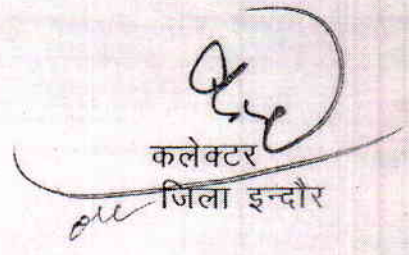 कलेक्टर
जिला इन्दौर